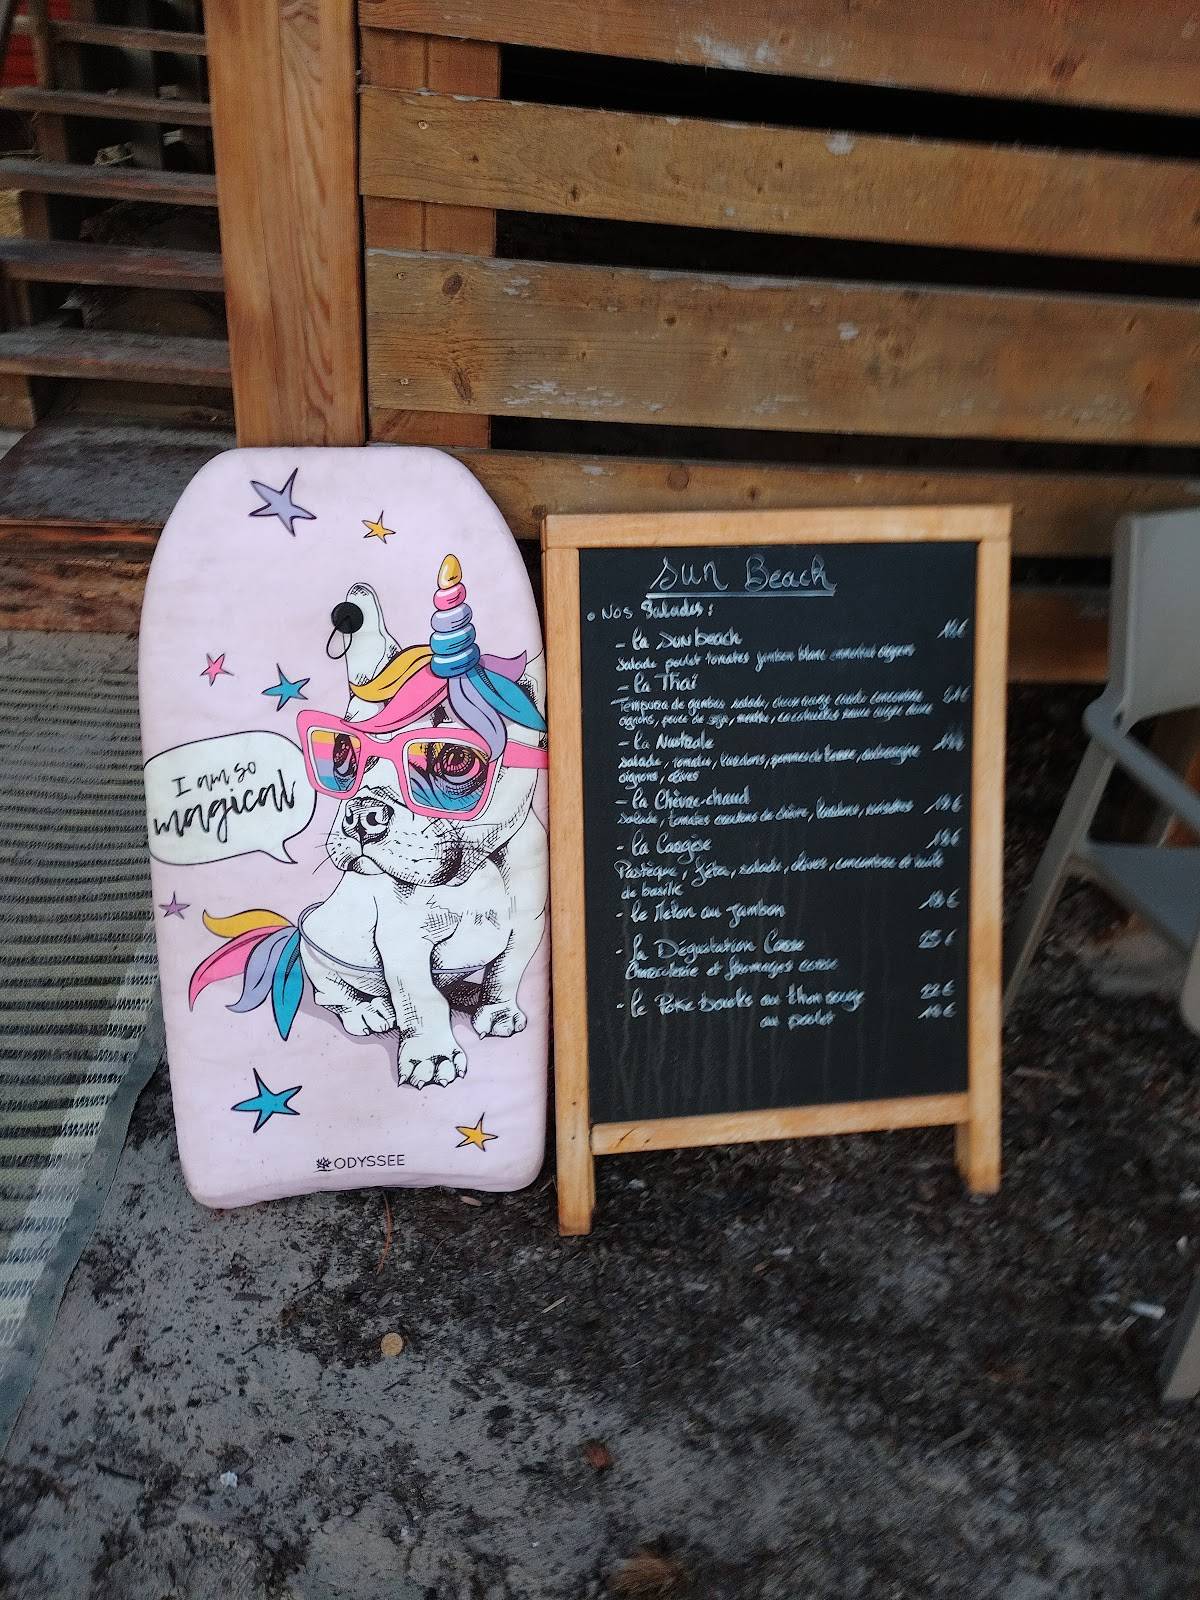 I am so
magical
ODYSSEE
Sun Beach
Nos Salades :
- la Sun beach 18€
Salade poulet tomates jambon blanc emmental oignons
- la Thaï
Tempura de gambas salade, concombre
oignons, menthe,
- la Nustrale
Salade, tomates, lardons, pommes de terre, aubergine
oignons, olives
- la Chèvre-chaud
Salade, tomates croutons de chèvre, lardons, noisettes 18€
- la Cargèse 18€
Pastèque, féta, salade, olives, concombre et huile
de basilic
- le Melon au Jambon 18€
- la Dégustation Corse 25€
Charcuterie et fromages corse
- le Poke bowls au thon rouge 22€
au poulet 18€